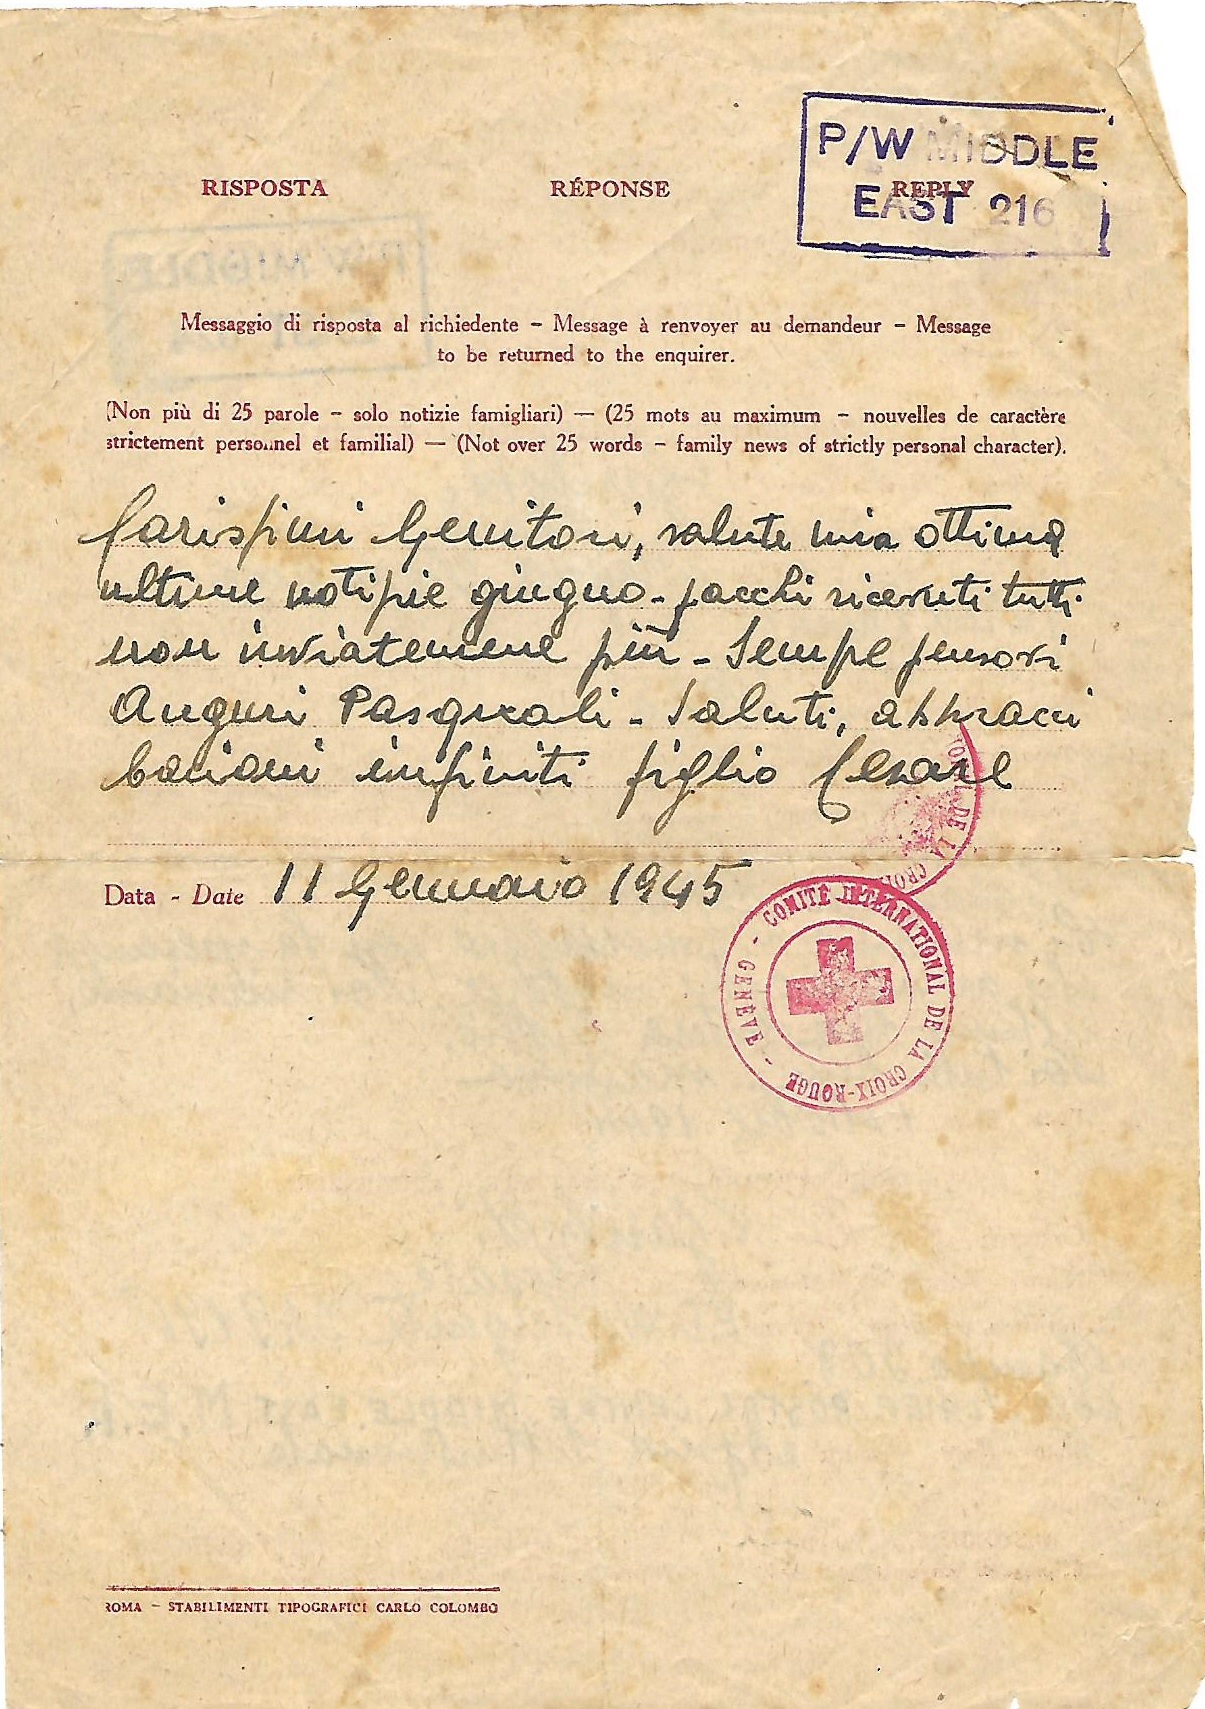 P/W MIDDLE
EAST 216
RISPOSTA RÉPONSE REPLY
Messaggio di risposta al richiedente - Message à renvoyer au demandeur - Message
to be returned to the enquirer.
(Non più di 25 parole - solo notizie famigliari) — (25 mots au maximum - nouvelles de caractère
strictement personnel et familial) — (Not over 25 words - family news of strictly personal character).
Carissimi Genitori, salute mia ottima
ultime notizie giugno - pacchi ricevuti tutti
non inviatemene più - Sempre pensovi
Auguri Pasquali - Saluti, abbracci
bacioni infiniti figlio Cesare
Data - Date 11 Gennaio 1945
COMITÉ INTERNATIONAL DE LA CROIX-ROUGE - GENÈVE -
DE LA CROIX
ROMA - STABILIMENTI TIPOGRAFICI CARLO COLOMBO